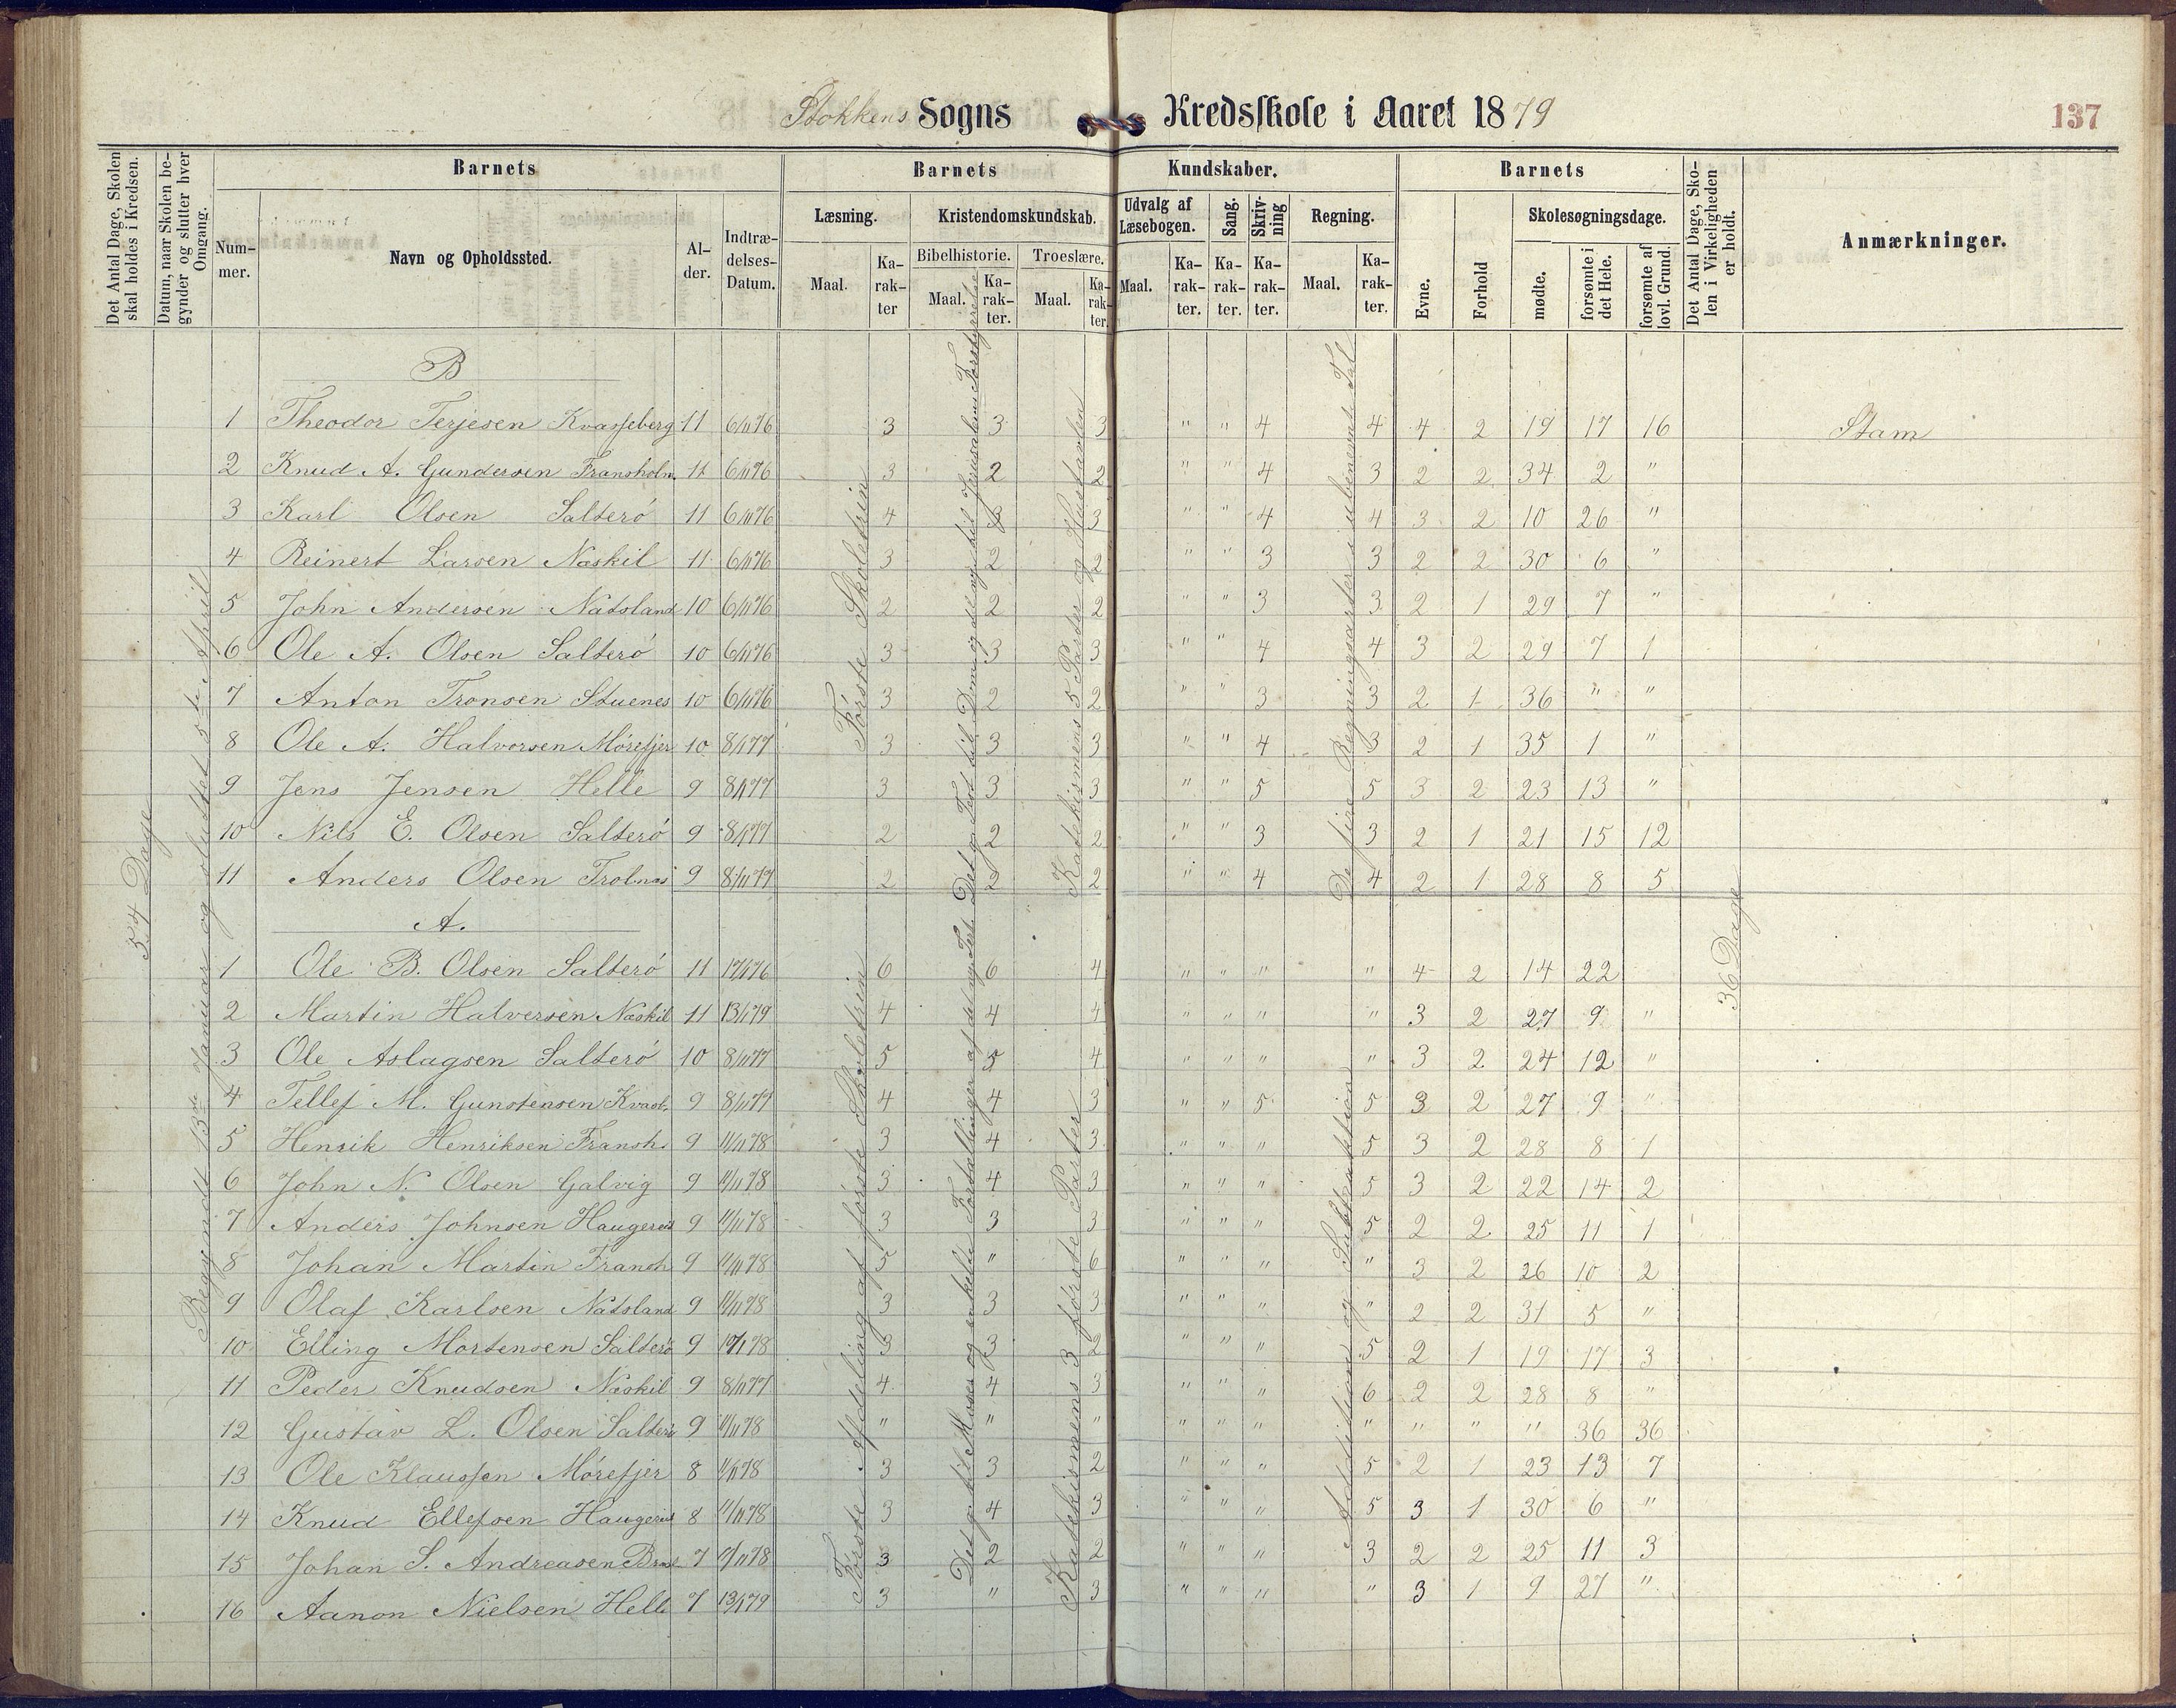 Stokkens Sogns Kredsskole i Aaret 1879
137
Det Antal Dage, Skolen skal holdes i Kredsen.
Datum, naar Skolen begynder og slutter hver Omgang.
Barnets
Nummer.
Navn og Opholdssted.
Alder.
Indtrædelses-Datum.
Barnets Kundskaber.
Læsning.
Maal.
Karakter
Kristendomskundskab.
Bibelhistorie.
Maal.
Karakter.
Troeslære.
Maal.
Karakter.
Udvalg af Læsebogen.
Maal.
Karakter.
Sang.
Karakter.
Skrivning
Karakter.
Regning.
Maal.
Karakter.
Barnets
Evne.
Forhold
Skolesøgningsdage.
mødte.
forsømte i det Hele.
forsømte af lovl. Grund.
Det Antal Dage, Skolen i Virkeligheden er holdt.
Anmærkninger.
54 Dage
Begyndt 13de Januar og sluttet 5te April
Første Skoletrin
Det gl. Test. til Dom. og det nye til Jerusalems Forstyrrelse
Katekismens 5 Parter og Hustavlen
De fire Regningsarter i ubenevnte Tal
B
1 Theodor Terjesen Kvasseberg 11 6/11 76 3 3 3 " " 4 4 4 2 19 17 16 Stam
2 Knud A. Gundersen Fransholm. 11 6/11 76 3 2 2 " " 4 3 2 2 34 2 "
3 Karl Olsen Salterö 11 6/11 76 4 3 3 " " 4 4 3 2 10 26 "
4 Reinert Larsen Næskil 11 6/11 76 3 2 2 " " 3 3 2 2 30 6 "
5 John Andersen Natsland 10 6/11 76 2 2 2 " " 3 3 2 1 29 7 "
6 Ole A. Olsen Salterö 10 6/11 76 3 3 3 " " 4 4 3 2 29 7 1
7 Anton Tronsen Stuenes 10 6/11 76 3 2 2 " " 3 3 2 1 36 " "
8 Ole A. Halvorsen Mörefjer 10 8/1 77 3 3 3 " " 4 3 2 1 35 1 "
9 Jens Jensen Helle 9 8/1 77 3 3 3 " " 5 5 3 2 23 13 "
10 Nils E. Olsen Salterö 9 8/1 77 2 2 2 " " 3 3 2 1 21 15 12
11 Anders Olsen Trolnæs 9 8/11 77 2 2 2 " " 4 4 2 1 28 8 5
36 Dage
Første Afdeling af første Skoletrin
Det gl. til Moses og enkelte Fortællinger af det nye Test.
Katekismens 3 første Parter
Addition og Subtraktion
A.
1 Ole B. Olsen Salterö 11 17/1 76 6 6 4 " " " " 4 2 14 22
2 Martin Halversen Næskil 11 13/1 79 4 4 4 " " " " 3 2 27 9 "
3 Ole Aslagsen Salterö 10 8/11 77 5 5 4 " " " " 3 2 24 12 "
4 Tellef M. Gunstensen Kvasb. 9 8/11 77 4 4 3 " " 5 5 3 2 27 9 "
5 Henrik Henriksen Fransh. 9 11/11 78 3 4 3 " " " 5 3 2 28 8 1
6 John N. Olsen Galvig 9 11/11 78 3 4 3 " " " 5 3 2 22 14 2
7 Anders Johnsen Haugereis 9 11/11 78 3 3 3 " " " 5 2 2 25 11 1
8 Johan Martin Fransh 9 11/11 78 5 " 6 " " " " 3 2 26 10 2
9 Olaf Karlsen Natsland 9 11/11 78 3 3 3 " " " " 2 2 31 5 "
10 Elling Mortensen Salterö 9 78 3 3 2 " " " 5 2 1 19 17 3
11 Peder Knudsen Næskil 9 8/11 77 4 4 3 " " " 6 2 2 28 8 "
12 Gustav L. Olsen Salterö 9 11/11 78 " " " " " " " " " " 36 36
13 Ole Klaussen Mörefjer 8 11/11 78 3 3 2 " " " 5 2 1 23 13 7
14 Knud Ellefsen Haugereis 8 11/11 78 3 4 3 " " " 5 3 1 30 6 "
15 Johan S. Andreasen 7 11/11 78 3 2 2 " " " 3 2 2 25 11 3
16 Aanon Nielsen Helle 7 13/1 79 3 " 3 " " " " 3 1 9 27 "